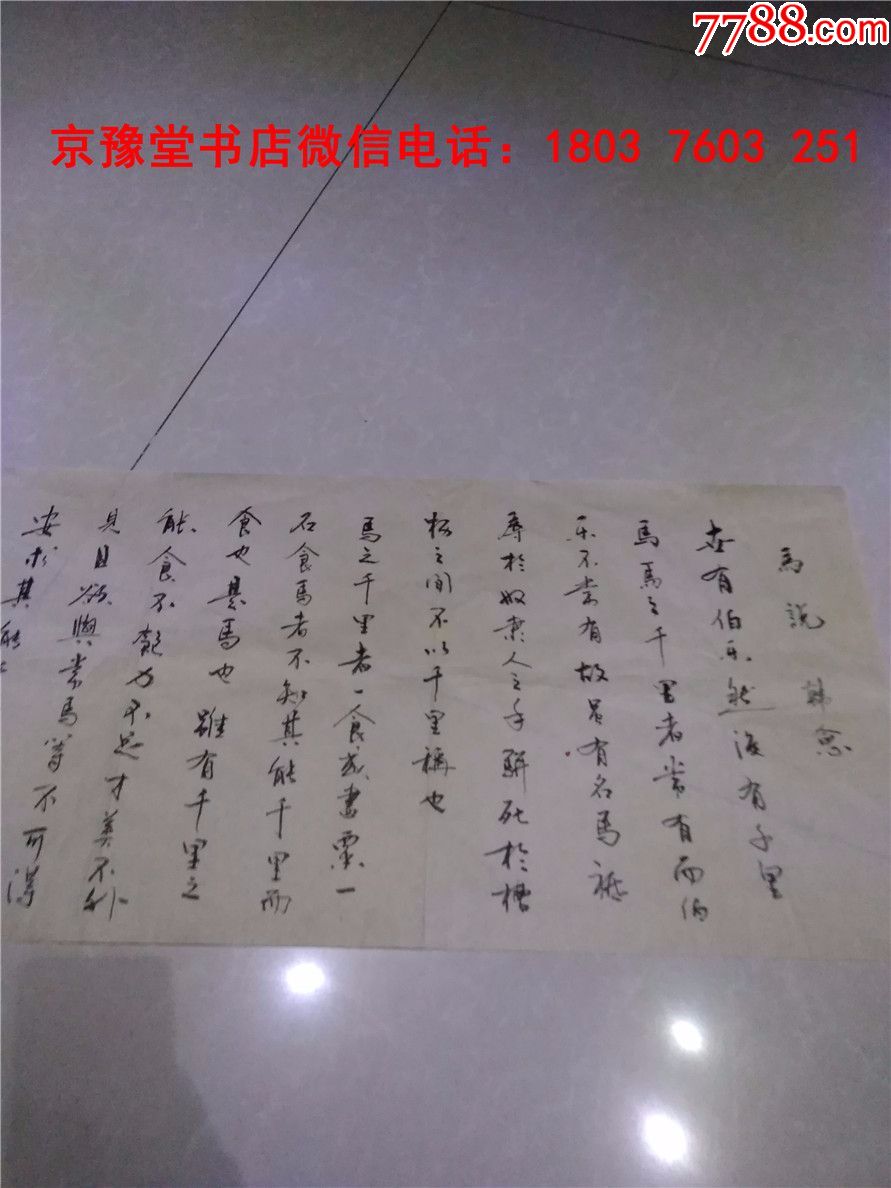 7788.com
京豫堂书店微信电话：1803 7603 251
馬說 韩愈
世有伯乐然後有千里
馬馬之千里者常有而伯
乐不常有故虽有名馬祗
辱於奴隶人之手駢死於槽
枥之间不以千里稱也
馬之千里者一食或盡粟一
石食馬者不知其能千里而
食也是馬也雖有千里之
能食不飽力不足才美不外
見且欲與常馬等不可得
安求其能